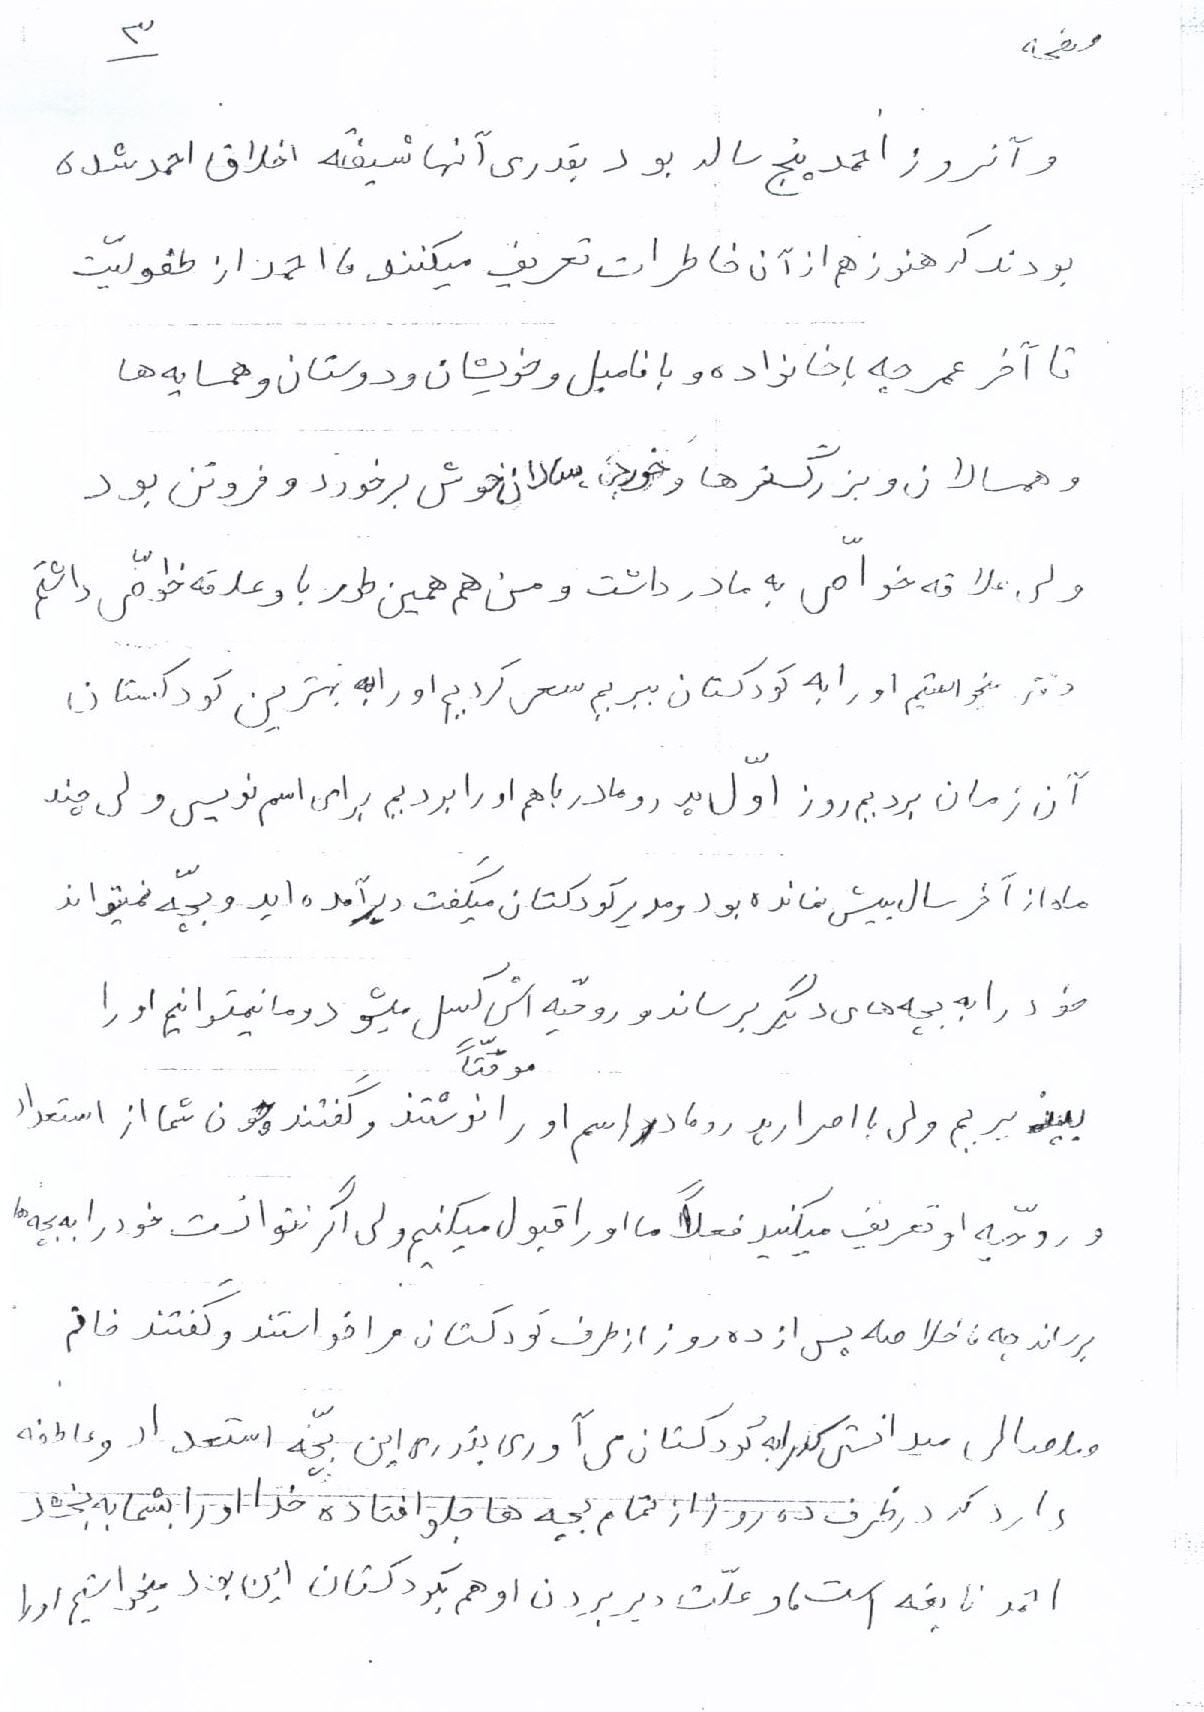 صفحه ۳
و آنروز احمد پنج ساله بود بقدری آنها شیفته اخلاق احمد شده
بودند که هنوز هم از آن خاطرات تعریف میکنند، احمد از طفولیّت
تا آخر عمر چه با خانواده و با فامیل و خویشان و دوستان و همسایه ها
و همسالان و بزرگسترها و خورد سالان خوش برخورد و فروتن بود
ولی علاقه خواصّی به مادر داشت و من هم همین طور با و علاقه خواصّی داشتم
میخواستیم او را به کودکستان ببریم سعی کردیم او را به بهترین کودکستان
آن زمان بردیم روز اوّل پدر و مادر با هم او را بردیم برای اسم نویسی ولی چند
ماه از آخر سال بیش نمانده بود و مدیر کودکستان میگفت دیر آمده اید و بچّه نمیتواند
خود را به بچه های دیگر برساند و روحیّه اش کسل میشود و ما نیمتوانیم او را
بپذیریم ولی با اصرار پدر و مادر اسم او را موقّتاً نوشتند و گفتند چون شما از استعداد
و روحّیه او تعریف میکنید فعلاً ما او را قبول میکنیم ولی اگر نتوانست خود را به بچه ها
برساند چه، خلاصه پس از ده روز از طرف کودکستان مرا خواستند و گفتند خانم
وصالی میدانستی که را به کودکستان می آوری بقدری این بچّه استعداد و عاطفه
دارد که در ظرف ده روز از تمام بچه ها جلو افتاده خدا او را بشما به بخشد
احمد نابغه است، و علّت دیر بردن او هم بکودکستان این بود میخواستیم او را